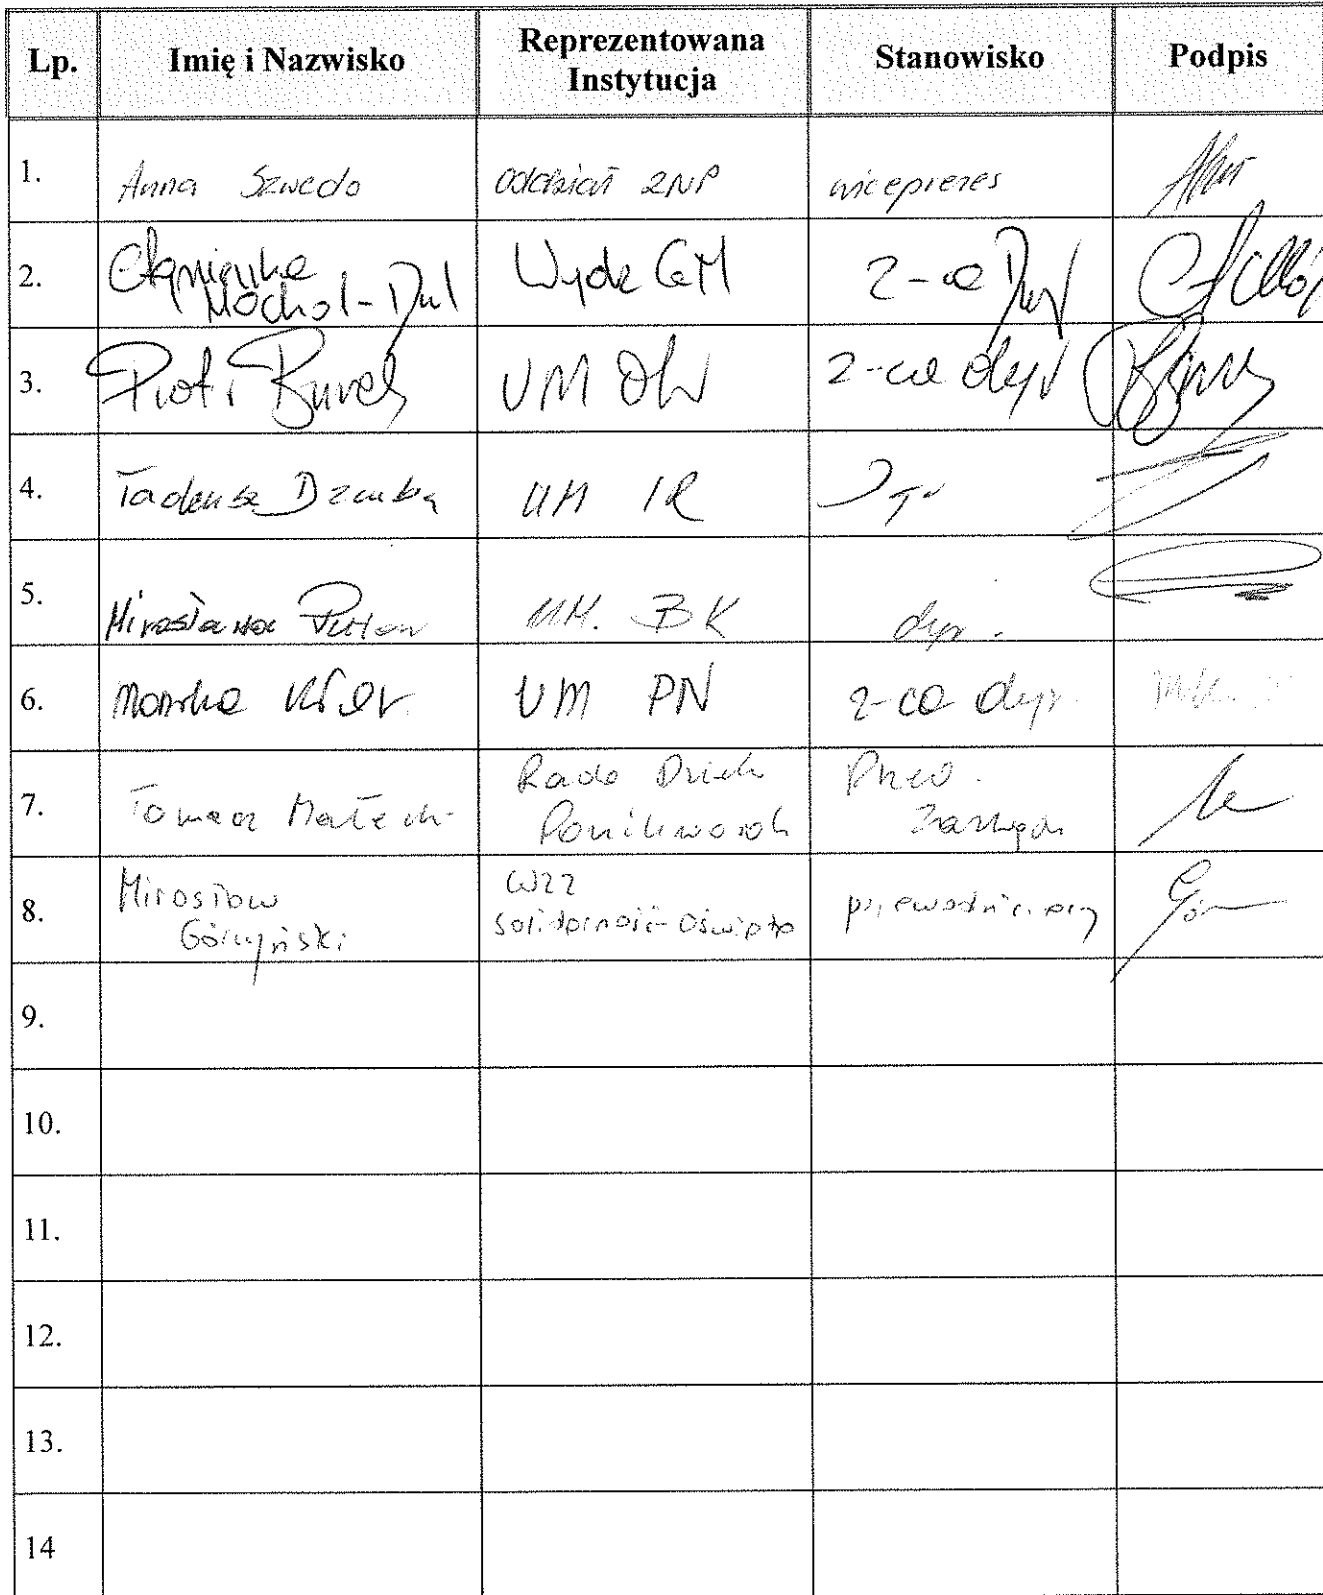 Lp. Imię i Nazwisko Reprezentowana Instytucja Stanowisko Podpis
1. Anna Szwedo oddział ZNP wiceprezes
2. Mochol-Dul Z-ca Dyr
3. Piotr UM z-ca dyr
4. Tadeusz Dziuba UM IR Dyr
5. Mirosława UM. BK dyr.
6. Monika Król UM PN z-ca dyr.
7. Tomasz Małecki Rada Dziel Ponikwoda Przew. Zarządu
8. Mirosław Górczyński WZZ Solidarność-Oświata przewodniczący
9.
10.
11.
12.
13.
14